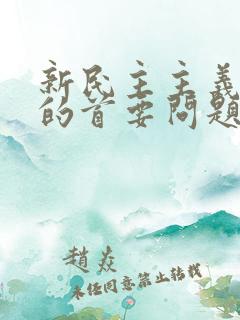 新民主主義
的首要問題
趙焱
未经同意禁止转载